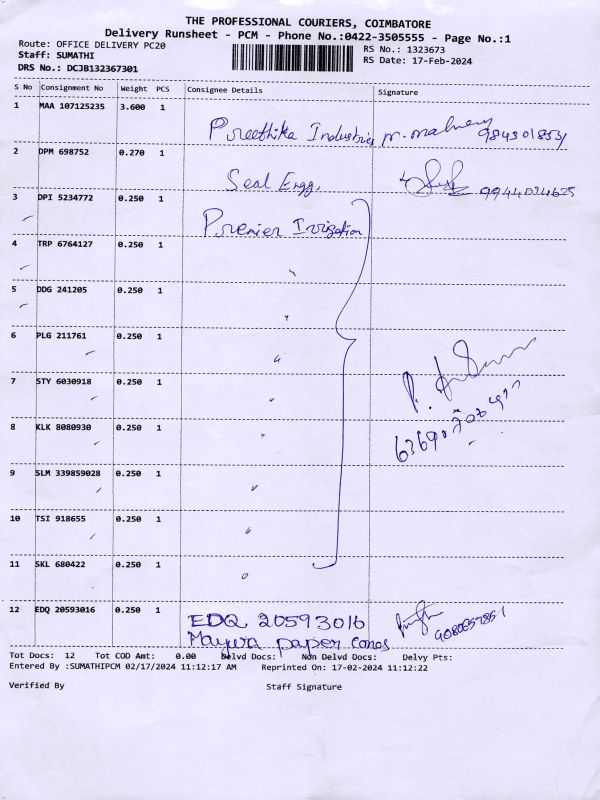 THE PROFESSIONAL COURIERS, COIMBATORE
Delivery Runsheet - PCM - Phone No.:0422-3505555 - Page No.:1
Route: OFFICE DELIVERY PC20
RS No.: 1323673
Staff: SUMATHI
RS Date: 17-Feb-2024
DRS No.: DCJB132367301
S No Consignment No Weight PCS Consignee Details Signature
1 MAA 107125235 3.600 1
Preethika Industries
2 DPM 698752 0.270 1
Seal Engg. 9944024625
3 DPI 5234772 0.250 1
Premier Irrigation
4 TRP 6764127 0.250 1
5 DDG 241205 0.250 1
6 PLG 211761 0.250 1
7 STY 6030918 0.250 1
8 KLK 8080930 0.250 1
9 SLM 339859028 0.250 1
10 TSI 918655 0.250 1
11 SKL 680422 0.250 1
12 EDQ 20593016 0.250 1
EDQ 20593016
Mayura paper cones
Tot Docs: 12 Tot COD Amt: 0.00 Delvd Docs: Non Delvd Docs: Delvy Pts:
Entered By :SUMATHIPCM 02/17/2024 11:12:17 AM Reprinted On: 17-02-2024 11:12:22
Verified By Staff Signature